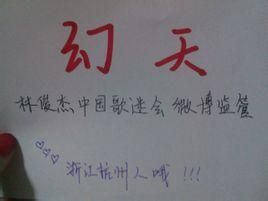 幻天
林俊杰中国歌迷会 微博监管
浙江杭州人哦!!!